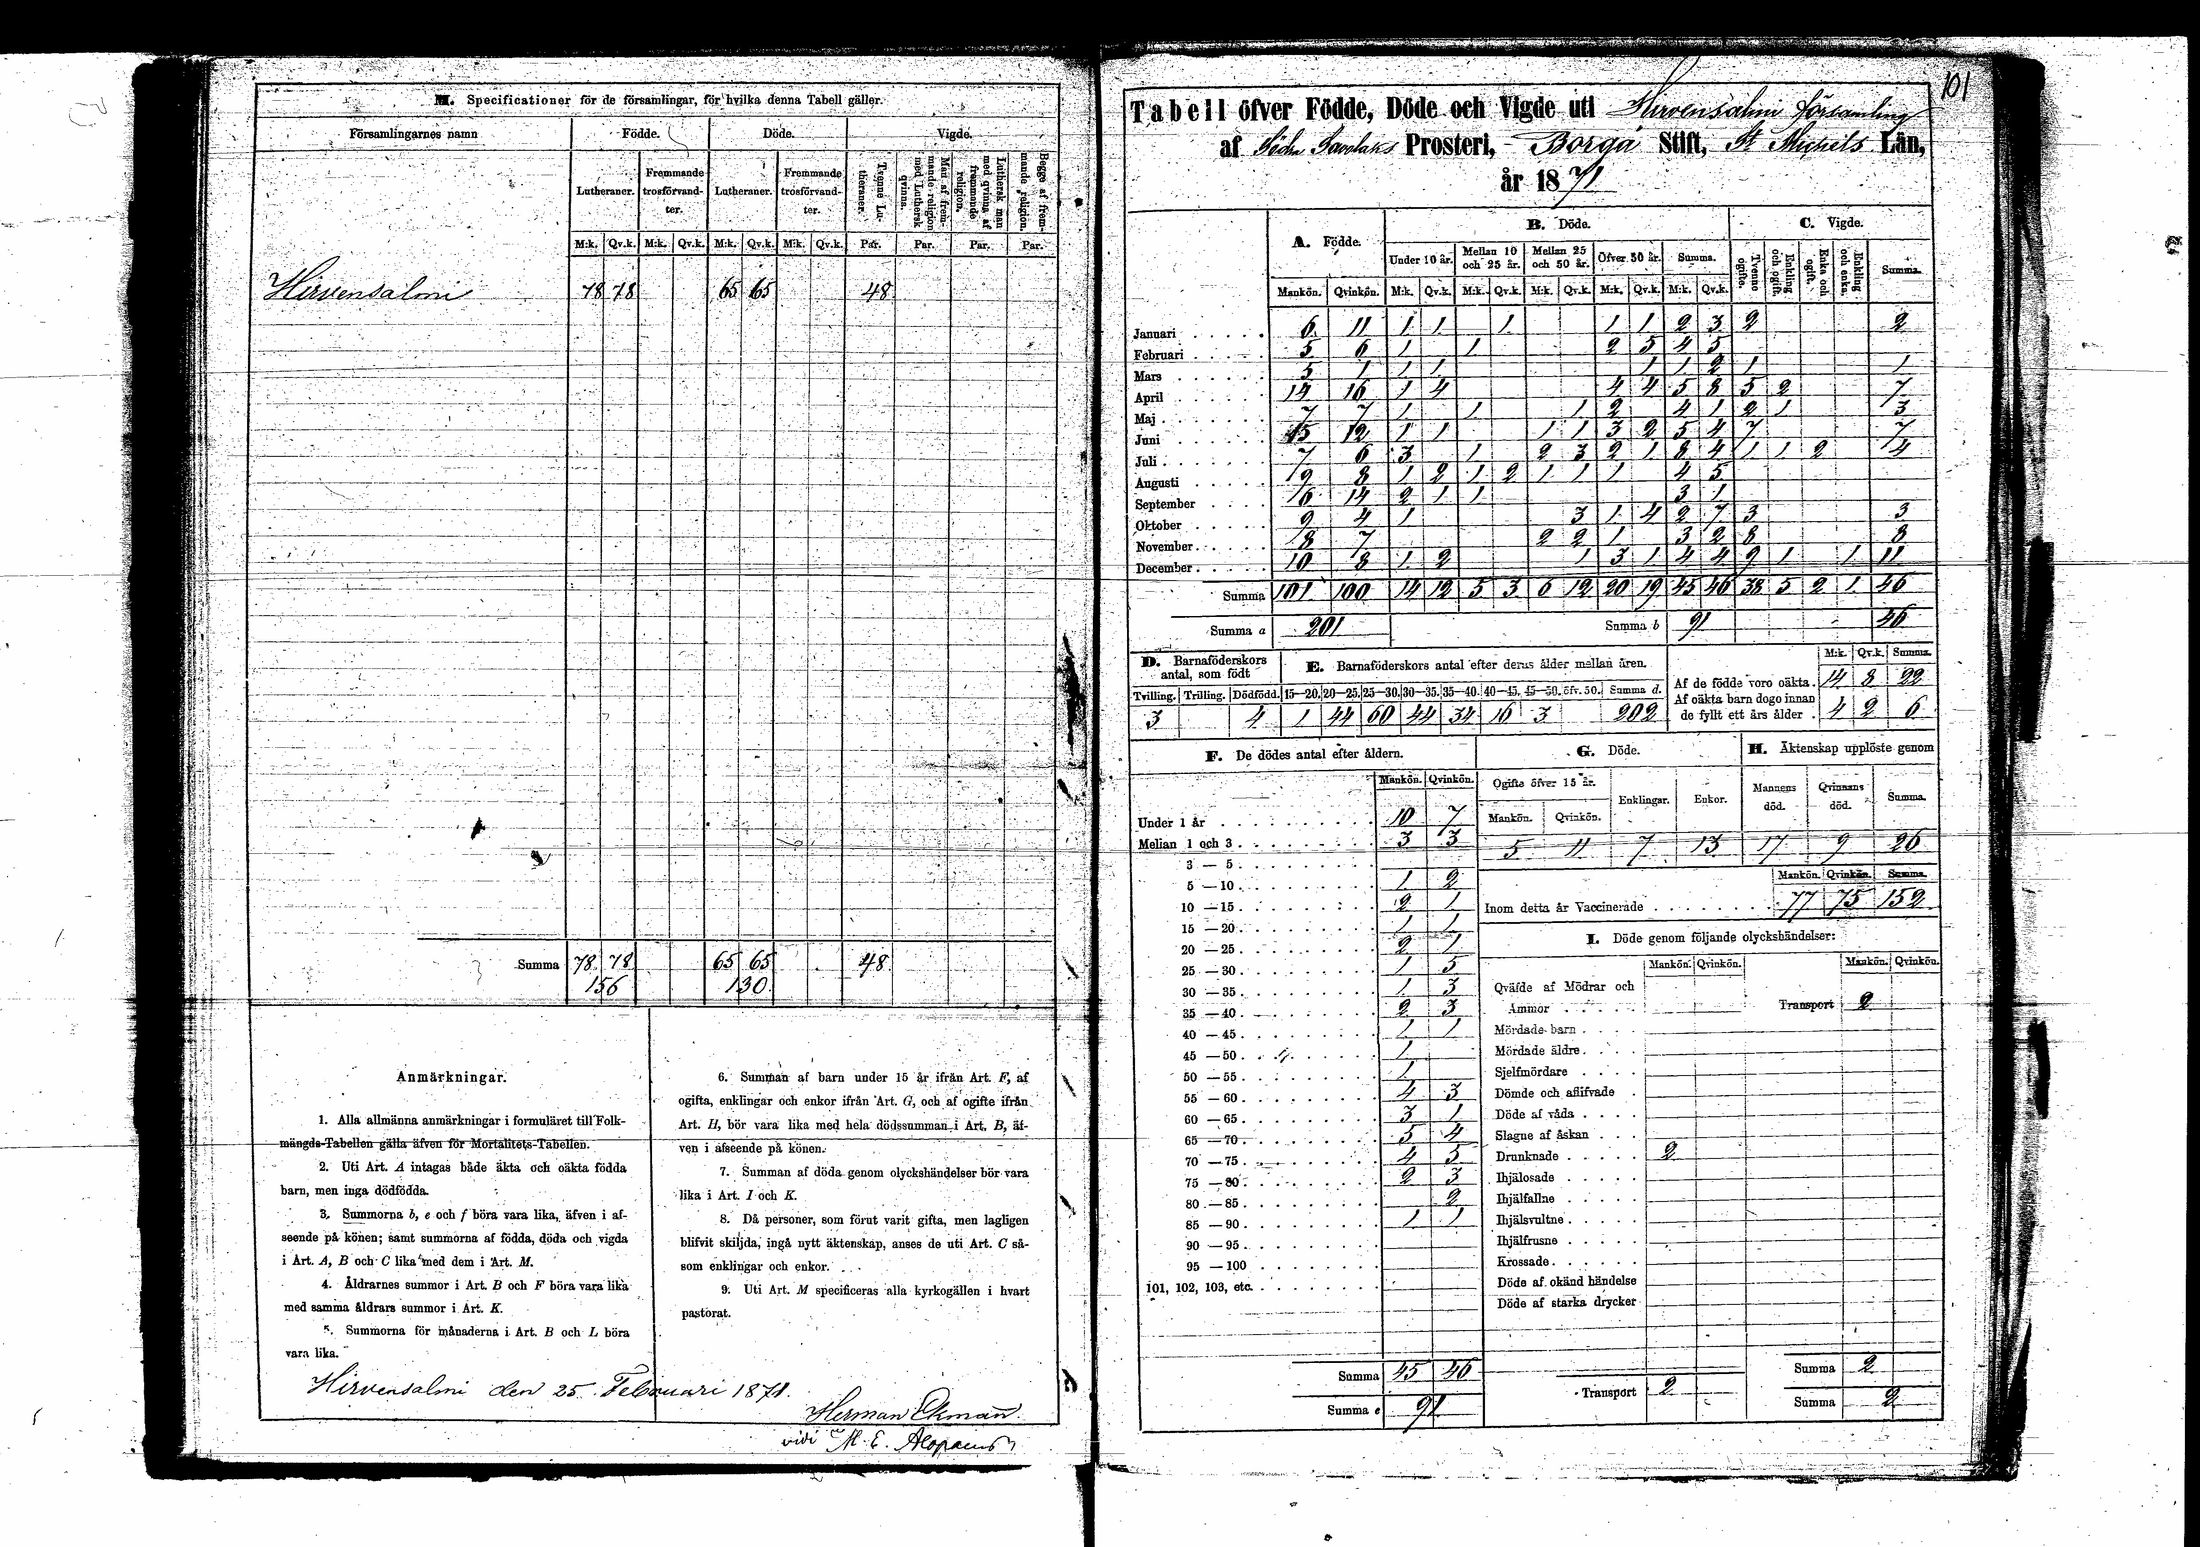 M. Specificationer för de församlingar, för hvilka denna Tabell gäller.
Församlingarnes namn | Födde. | Döde. | Vigde.
Lutheraner. | Fremmande trosförvandter. | Lutheraner. | Fremmande trosförvandter. | Tvenne Lutheraner. | Man af fremmande religion med Luthersk qvinna. | Luthersk man med qvinna af fremmande religion. | Begge af fremmande religion.
M:k. | Qv.k. | M:k. | Qv.k. | M:k. | Qv.k. | M:k. | Qv.k. | Par. | Par. | Par. | Par.
Hirvensalmi 78 78 65 65 48
Summa 78 78 65 65 48
156 130
Anmärkningar.
1. Alla allmänna anmärkningar i formuläret till Folk-
mängds-Tabellen gälla äfven för Mortalitets-Tabellen.
2. Uti Art. A intagas både äkta och oäkta födda
barn, men inga dödfödda.
3. Summorna b, e och f böra vara lika, äfven i af-
seende på könen; samt summorna af födda, döda och vigda
i Art. A, B och C lika med dem i Art. M.
4. Åldrarnes summor i Art. B och F böra vara lika
med samma åldrars summor i Art. K.
5. Summorna för månaderna i Art. B och L böra
vara lika.
6. Summan af barn under 15 år ifrån Art. F, af
ogifta, enklingar och enkor ifrån Art. G, och af ogifte ifrån
Art. H, bör vara lika med hela dödssumman i Art. B, äf-
ven i afseende på könen.
7. Summan af döda genom olyckshändelser bör vara
lika i Art. I och K.
8. Då personer, som förut varit gifta, men lagligen
blifvit skiljda, ingå nytt äktenskap, anses de uti Art. C så-
som enklingar och enkor.
9. Uti Art. M specificeras alla kyrkogällen i hvart
pastorat.
Hirvensalmi den 25 Februari 1871.
Herman Ekman
vidi M. E. Alopaeus
101
Tabell öfver Födde, Döde och Vigde uti Hirvensalmi församling
af Södra Savolaks Prosteri, Borgå Stift, St Michels Län,
år 1871
A. Födde. | B. Döde. | C. Vigde.
Under 10 år. | Mellan 10 och 25 år. | Mellan 25 och 50 år. | Öfver 50 år. | Summa. | Tvenne ogifte. | Enkling och ogift. | Enka och ogift. | Enkling och enka. | Summa.
Mankön. | Qvinkön. | M:k. | Qv.k. | M:k. | Qv.k. | M:k. | Qv.k. | M:k. | Qv.k. | M:k. | Qv.k.
Januari 6 11 1 1 1 1 1 2 3 2 2
Februari 5 6 1 1 2 5 4 5
Mars 3 1 1 1 1 1 2 1 1
April 14 16 1 4 4 4 5 8 5 2 7
Maj 7 7 1 1 1 2 4 1 2 1 3
Juni 15 12 1 1 1 1 3 2 5 4 7 7
Juli 7 6 3 1 2 3 2 1 8 4 1 1 2 4
Augusti 9 8 1 2 1 2 1 1 1 4 5
September 16 14 2 1 1 3 1
Oktober 9 4 1 3 1 4 2 7 3 3
November 8 7 2 2 1 3 2 8 8
December 10 8 1 2 1 3 1 4 4 9 1 1 11
Summa 101 100 14 12 5 3 6 12 20 19 45 46 38 5 2 1 46
Summa a 201 Summa b 91 46
D. Barnaföderskors antal, som födt | E. Barnaföderskors antal efter deras ålder mellan åren.
Tvilling. | Trilling. | Dödfödd. | 15—20. | 20—25. | 25—30. | 30—35. | 35—40. | 40—45. | 45—50. | öfv. 50. | Summa d.
3 4 1 44 60 44 34 16 3 202
M:k. | Qv.k. | Summa.
Af de födde voro oäkta. 14 8 22
Af oäkta barn dogo innan
de fyllt ett års ålder 4 2 6
F. De dödes antal efter åldern.
Mankön. | Qvinkön.
Under 1 år 10 7
Mellan 1 och 3 3 3
3 — 5
5 — 10 1 2
10 — 15 2 1
15 — 20 1 1
20 — 25 2 1
25 — 30 1 5
30 — 35 1 3
35 — 40 2 3
40 — 45 1 1
45 — 50 1
50 — 55 1
55 — 60 4 3
60 — 65 3 1
65 — 70 5 4
70 — 75 4 5
75 — 80 2 3
80 — 85 2
85 — 90 1 1
90 — 95
95 — 100
101, 102, 103, etc.
Summa 45 46
Summa e 91
G. Döde. | H. Äktenskap upplöste genom
Ogifte öfver 15 år. | Enklingar. | Enkor. | Mannens död. | Qvinnans död. | Summa.
Mankön. | Qvinkön.
5 11 7 13 17 9 26
Mankön. | Qvinkön. | Summa.
Inom detta år Vaccinerade 77 75 152
I. Döde genom följande olyckshändelser:
Mankön. | Qvinkön. | Mankön. | Qvinkön.
Qväfde af Mödrar och
Ammor
Transport 2
Mördade barn
Mördade äldre
Sjelfmördare
Dömde och aflifvade
Döde af våda
Slagne af åskan
Drunknade 2
Ihjälosade
Ihjälfallne
Ihjälsvultne
Ihjälfrusne
Krossade
Döde af okänd händelse
Döde af starka drycker
Transport 2
Summa 2
Summa 2